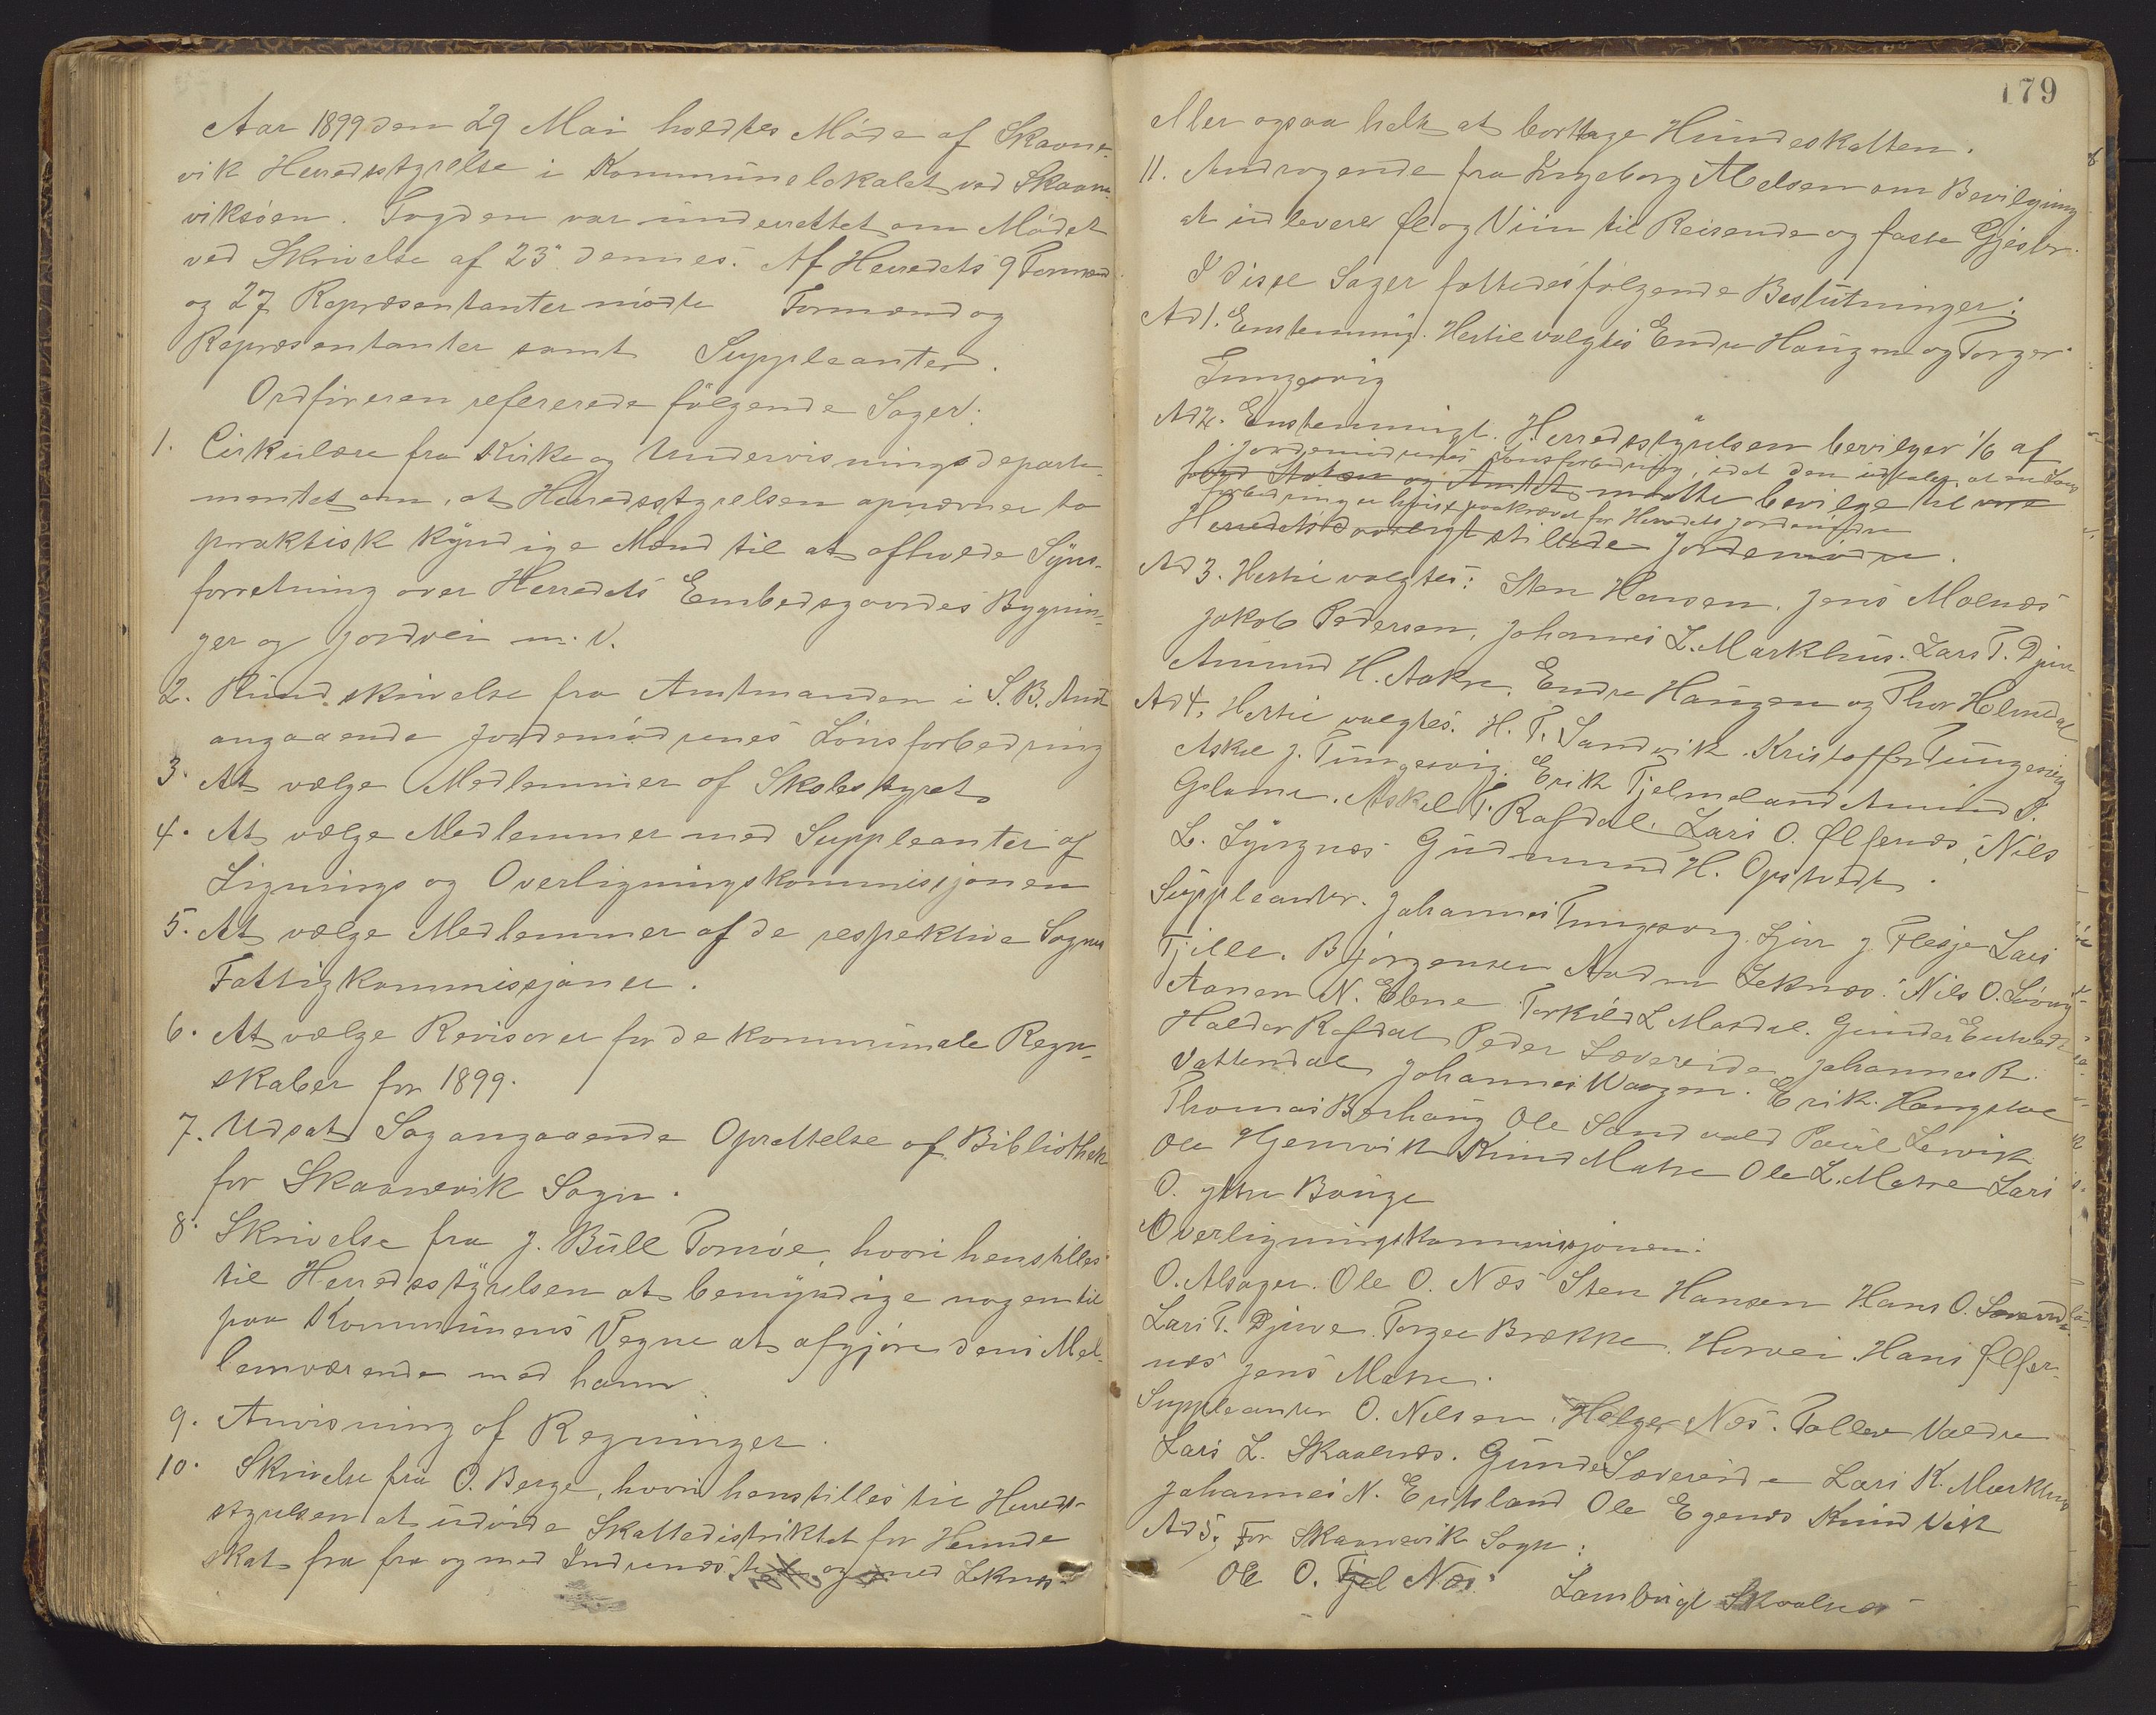 Aar 1899 den 29 Mai holdtes Møde af Skaane-
vik Herredsstyrelse i Kommunelokalet ved Skaane-
viksøen. Fogden var underrettet om Mødet
ved Skrivelse af 23 dennes. Af Herredets 9 Formænd
og 27 Repræsentanter mødte Formænd og
Repræsentanter samt Suppleanter.
Ordføreren refererede følgende Sager:
1. Cirkulære fra Kirke og Undervisningsdeparte-
mentet om, at Herredsstyrelsen opnævner to
praktisk kyndige Mænd til at afholde Syns-
forretning over Herredets Embedsgaardes Bygnin-
ger og Jordvei m. v.
2. Rundskrivelse fra Amtmanden i S. B. Amt
angaaende Jordemødrenes Lønsforbedring
3. At vælge Medlemmer af Skolestyret
4. At vælge Medlemmer med Suppleanter af
Lignings og Overligningskommissjonen
5. At vælge Medlemmer af de respektive Sognes
Fattigkommissjoner.
6. At vælge Revisorer for de kommunale Regn-
skaber for 1899.
7. Udsat Sag angaaende Oprettelse af Bibliothek
for Skaanevik Sogn.
8. Skrivelse fra J. Bull Tornøe, hvori henstilles
til Herredsstyrelsen at bemyndige nogen til
paa Kommunens Vegne at afgjøre dens Mel-
lemværende med ham.
9. Anvisning af Regninger.
10. Skrivelse fra O. Berge, hvori henstilles til Herreds-
styrelsen at udvide Skattedistriktet for Hunde
skat fra fra og med Indrenæs til og med Leknes
179
eller ogsaa helt at borttage Hundeskatten.
11. Andragende fra Ingeborg Melsen om Bevilgning
at udlevere Øl og Viin til Reisende og faste Gjester.
I disse Sager fattedes følgende Beslutninger:
Ad 1. Enstemmig. Hertil valgtes Endre Haugen og Torger
Tungesvig
Ad 2. Enstemmigt. Herredsstyrelsen bevilger 1/6 af
Jordemødrenes Lønsforbedring, idet den udtaler, at en Løns
Staten og Amtet maatte bevilge til vore
forbedring er høist paakrævet for Herredets Jordemødre
Herredets daarligt stillede Jordemødre.
Ad 3. Hertil valgtes: Sten Hansen, Jens Molnæs
Jakob Pedersen, Johannes L. Markhus. Lars T. Djuve
Amund H. Aakre, Endre Haugen og Thor Helmdal
Ad 4. Hertil valgtes. H. T. Sandvik. Kristoffer Tungesvig
Askel J. Tungesvig. Erik Tjelmeland Amund T.
Gslame. Askel T. Rafdal. Lars O. Ølfernæs, Nils
L. Lyngnæs Gudmund H. Opstvedt.
Suppleanter. Johannes Tungesvig. Sjur J. Flesje Lars
Tjille. B. Jørgensen Leknæs. Nils O. Løvvig
Aanen N. Ebne Torkild L Mardal. Gunder Eutvedt
Haldor Rafdal Peder Sævereide Johannes R.
Vattendal Johannes Waagen. Erik Haugstoe
Thomas Borhaug Ole Sandvold Paul Lervik
Ole Hjemvik Knud Matre Ole L. Matre Lars
O. ytre Bauge
Overligningskommissjonen:
O. Alsager. Ole O. Næs Sten Hansen Hans O. Sævereide
Lars T. Djuve. Torger Brække. Hans Ølfer-
næs Jens Matre.
Suppleanter O. Nilsen. Helge Næs. Tollev Valdre
Lars L. Skaalnæs. Gunder Sævereide Lars K. Markhus
Johannes N. Eutsland Ole Egenæs Knud Vik
Ad 5. For Skaanevik Sogn:
Ole O. Næs Lambrigt Skaalnæs